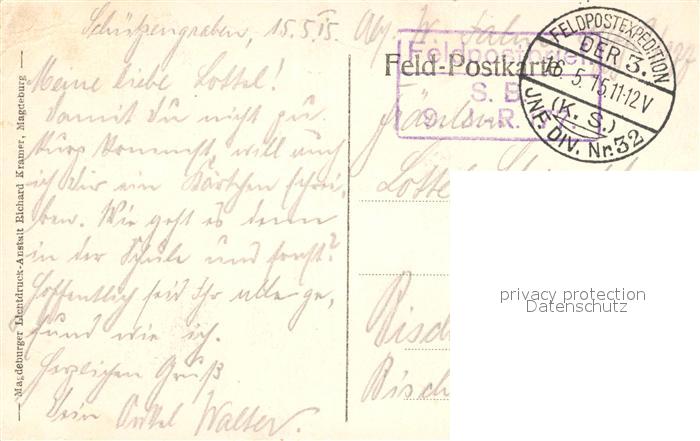 Schützengraben, 15.5.15.
Meine liebe Lottel!
Damit Du nicht zu
kurz kommst, will auch
ich Dir ein Kärtchen schrei-
ben. Wie geht es denn
in der Schule und sonst?
Hoffentlich seid Ihr alle ge-
sund wie ich.
Herzlichen Gruß
Dein Onkel Walter.
Magdeburger Lichtdruck-Anstalt Richard Kramer, Magdeburg
Abs.
Feld-Postkarte
Feldpostbrief
S. B.
FELDPOSTEXPEDITION
DER 3.
16.5.15.11-12V
(K. S.)
INF. DIV. Nr. 32
Fräulein
Lottel
privacy protection
Datenschutz